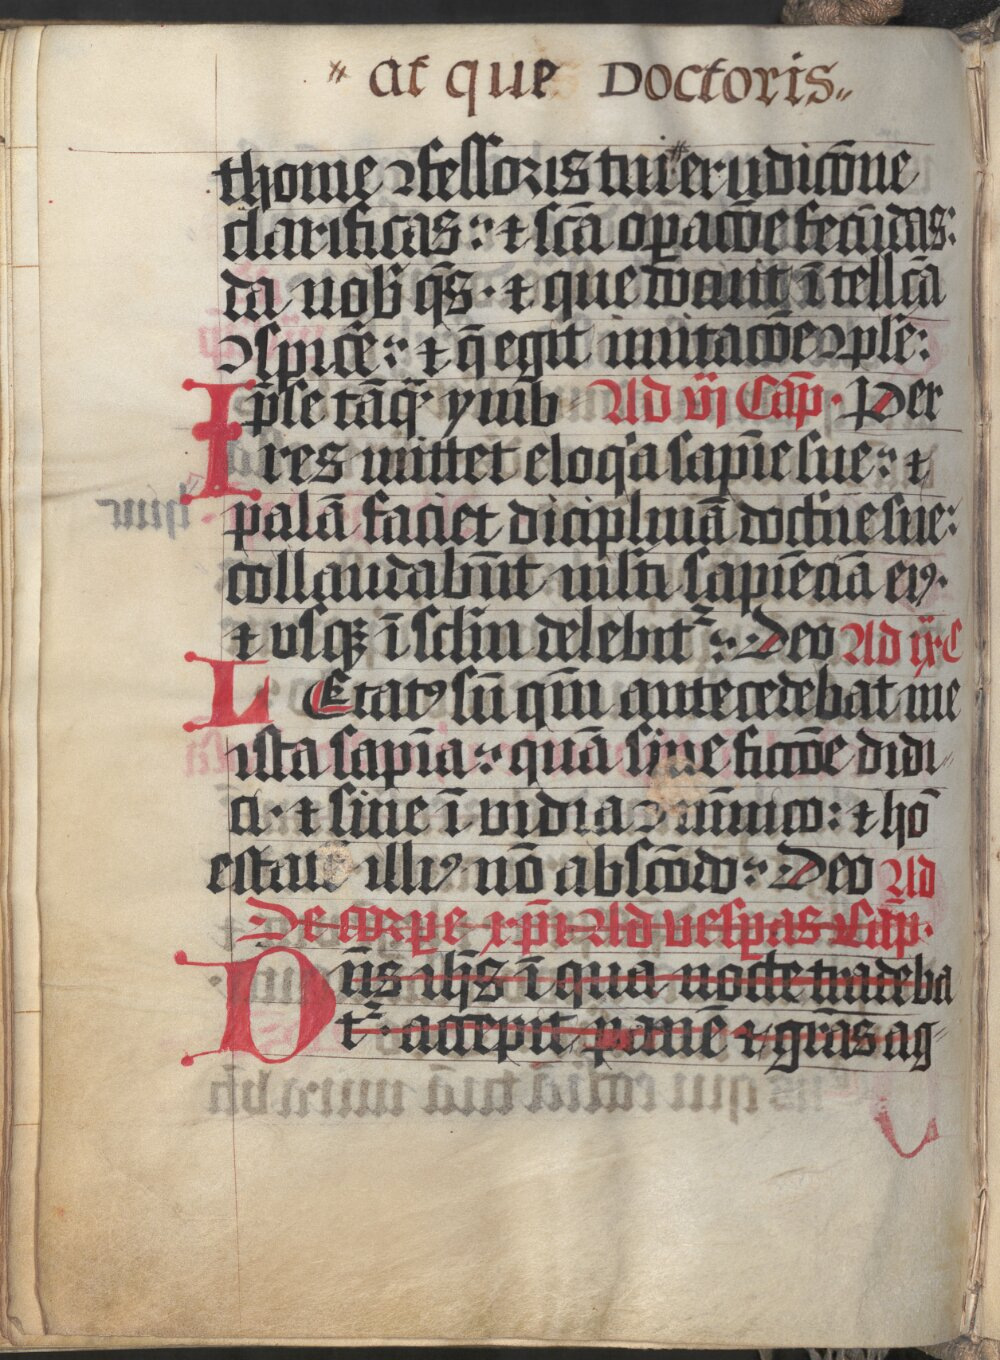 " at que Doctoris "
thome ꝯfessoris tui # erudicōne
clarificas: ⁊ scā oꝑacōe fecūdas:
da nob̄ q̄s · ⁊ que docuit ītellcā
ꝯspicē: ⁊ q̄ egit imitacōe ꝯplē:
Ip̄se tāq̄ȝ ymb̄ Ad vj Cap̄ · Per
res mittet eloq̇a sapīe sue: ⁊
palā faciet diciplinā doct̄ne sue:
collaudabūt m̄lti sapīēciā eiꝰ·
⁊ usqȝ ī sclm̄ delebit᷑: Deo Ad ix C
LEtatꝰ sū qm̄ antecedebat me
ista sapīa: quā sine fictōe didi
ci · ⁊ sine īvidia ꝯmūico: ⁊ hō
estatē illiꝰ nō abscōdo: Deo Ad
De corꝑe xp̄i Ad vesꝑas Cap̄·
Dn̄s ih̄s ī qua nocte tradeba
t᷑· accepit panē ⁊ grās ag